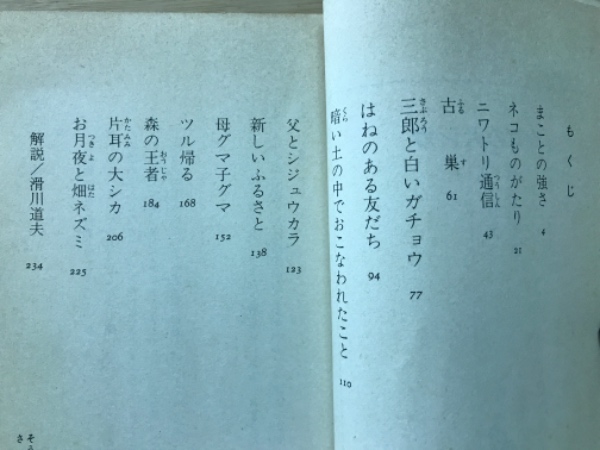 もくじ
まことの強さ 4
ネコものがたり 21
ニワトリ通信 43
古巣 61
三郎と白いガチョウ 77
はねのある友だち 94
暗い土の中でおこなわれたこと 110
父とシジュウカラ 123
新しいふるさと 138
母グマ子グマ 152
ツル帰る 168
森の王者 184
片耳の大シカ 206
お月夜と畑ネズミ 225
解説/滑川道夫 234